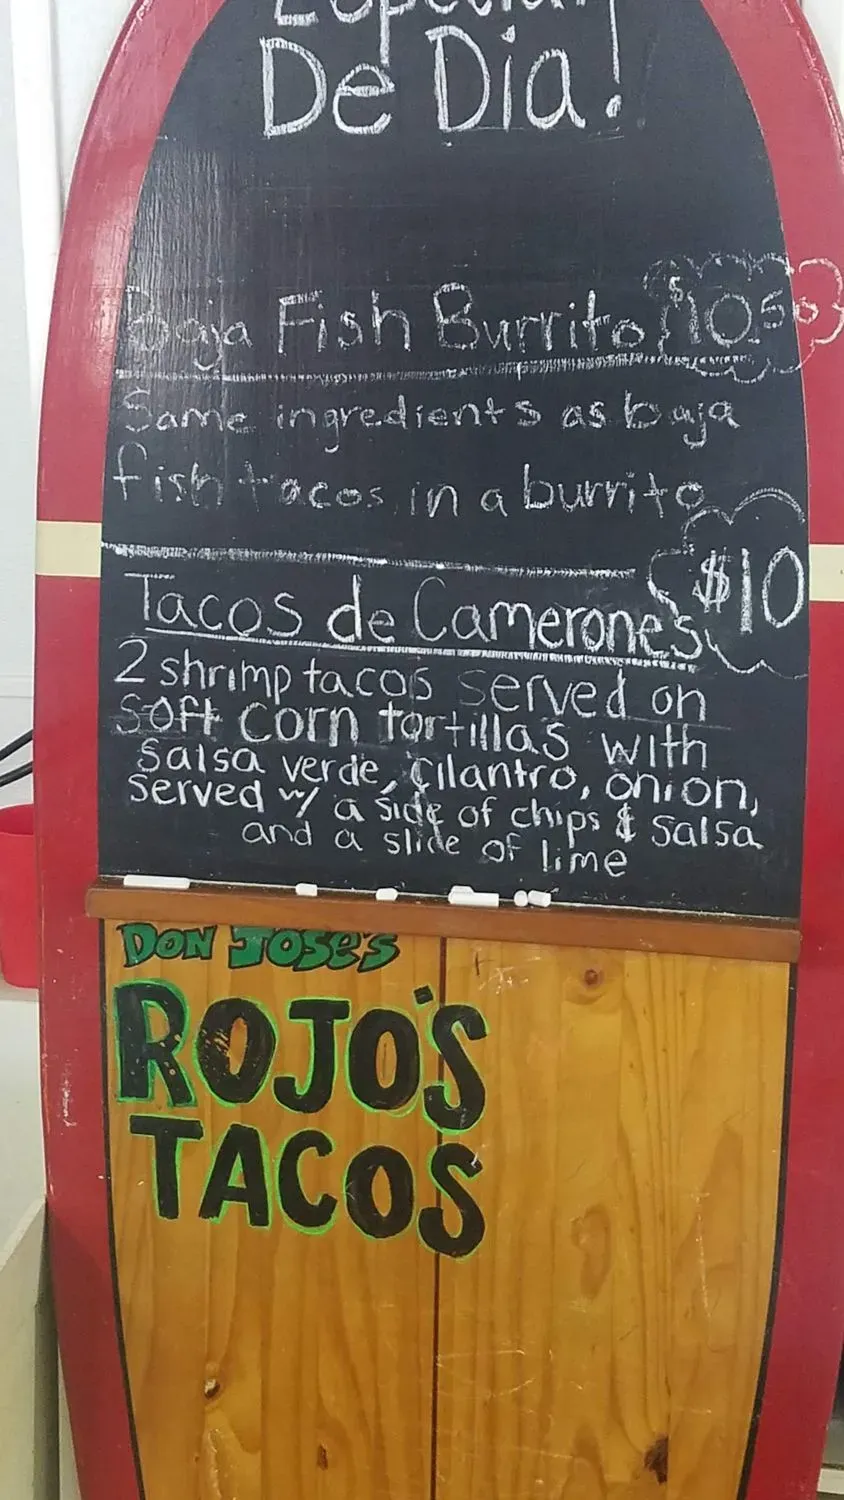 Especial
De Dia!
Baja Fish Burrito $10.50
Same ingredients as baja
fish tacos in a burrito
$10
Tacos de Camerones
2 shrimp tacos served on
soft corn tortillas with
salsa verde, cilantro, onion,
served w/ a side of chips & salsa
and a slice of lime
DON JOSE'S
ROJO'S
TACOS